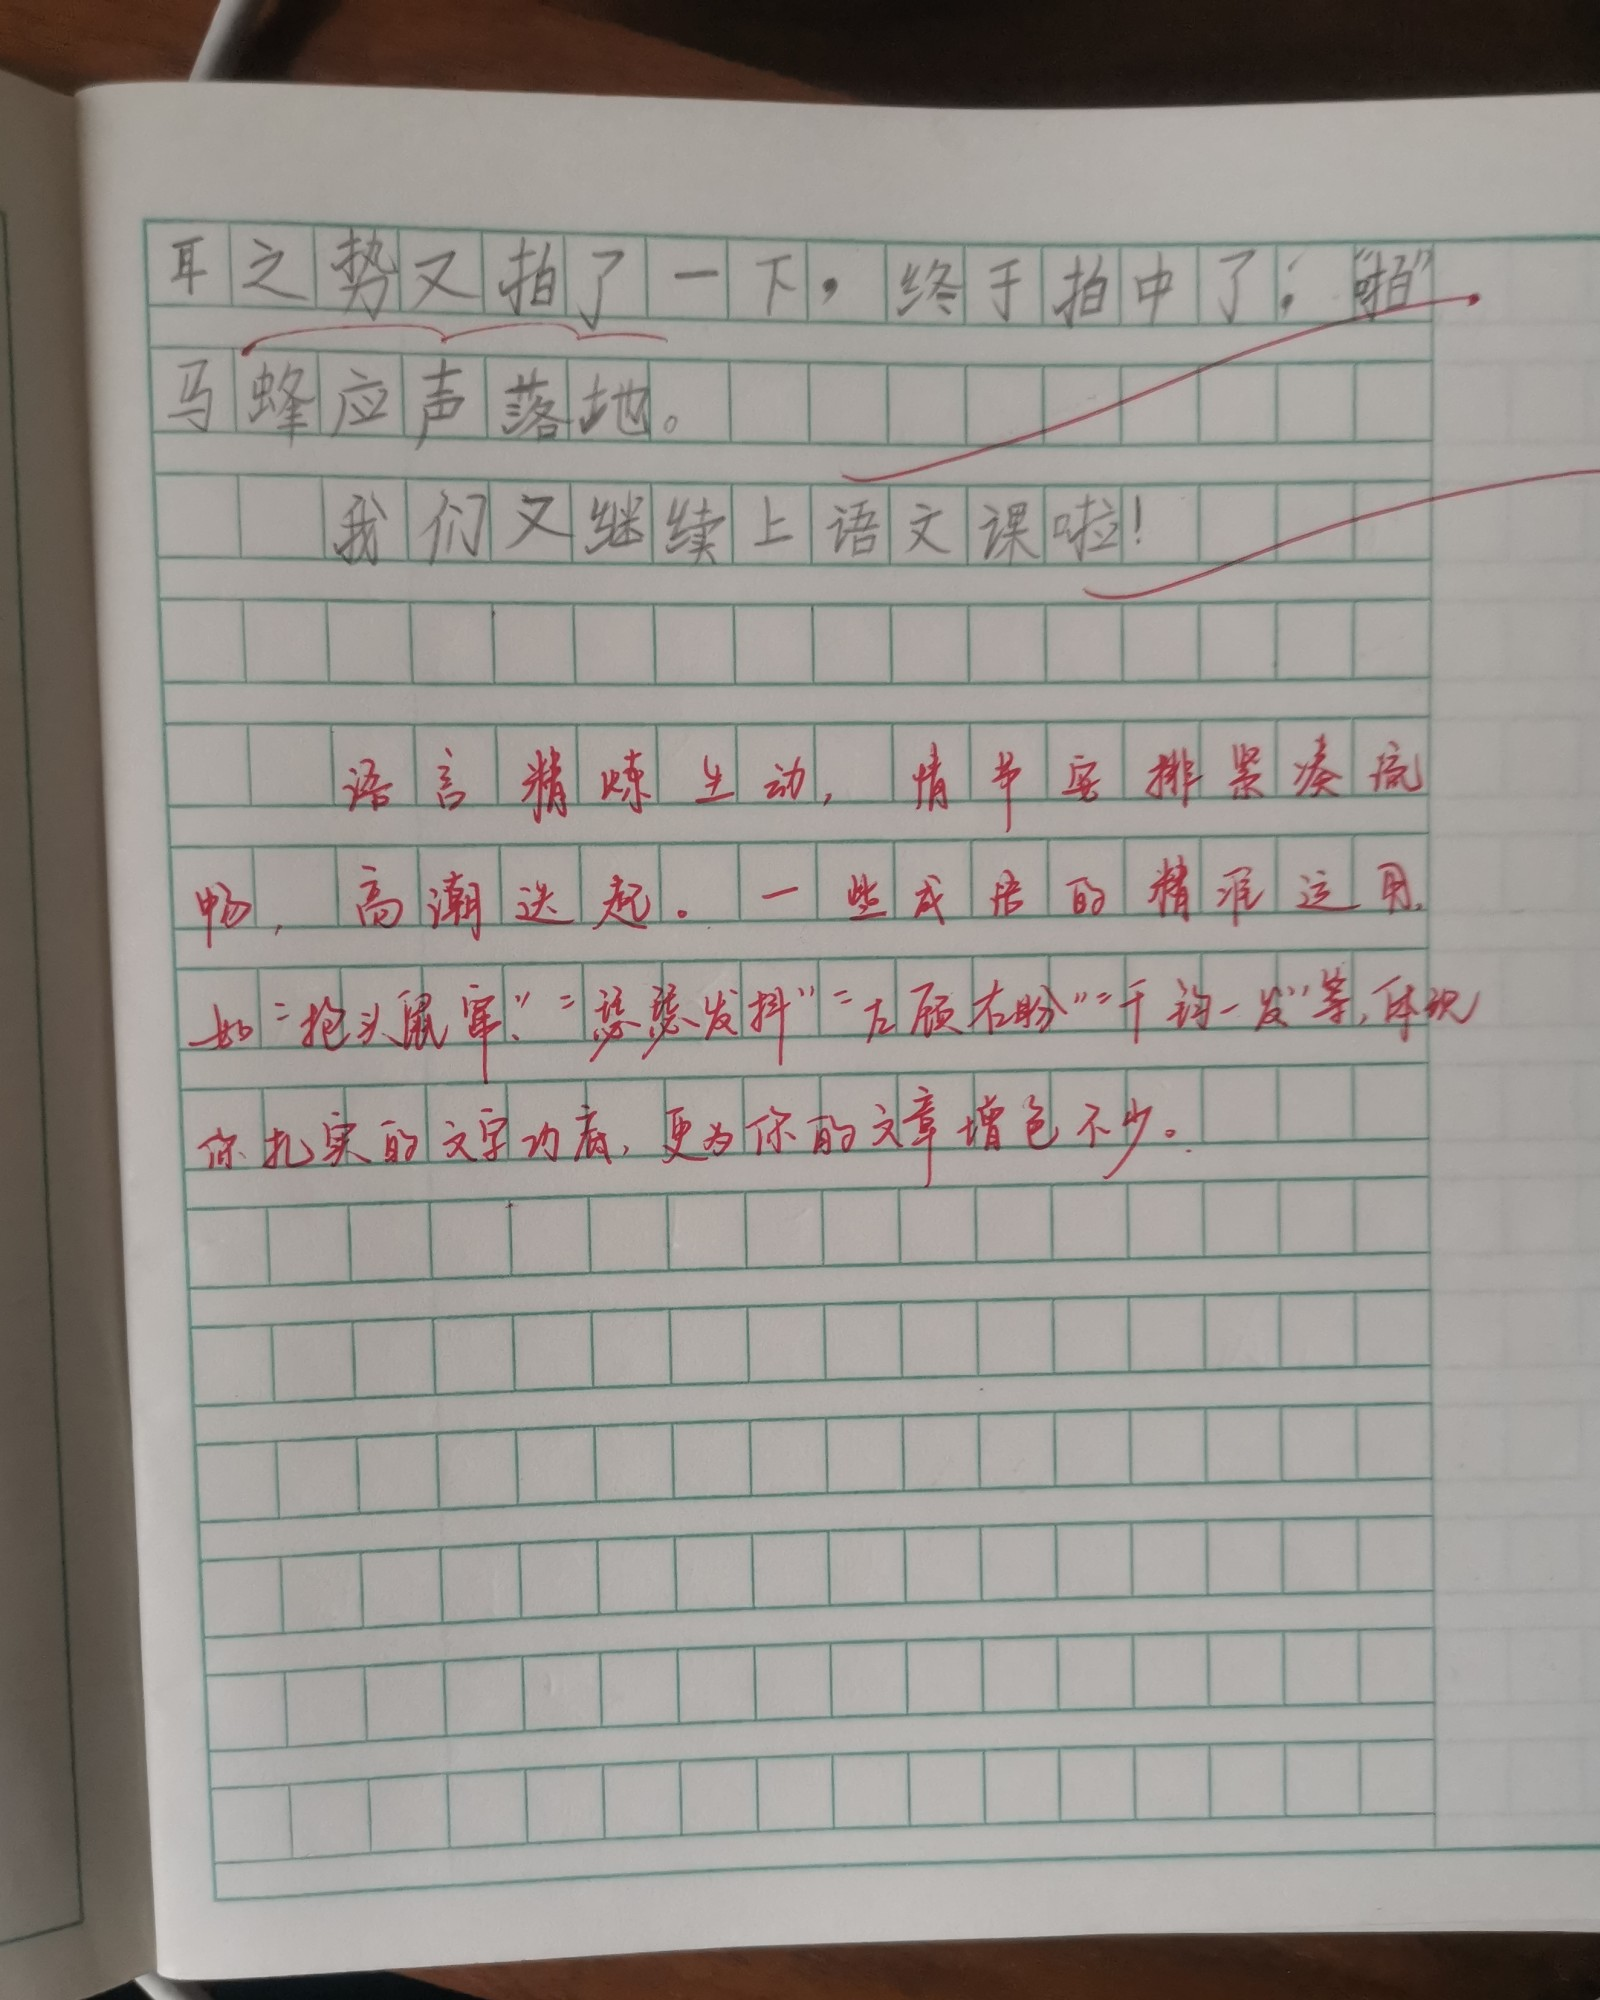 耳之势又拍了一下，终于拍中了；“啪”
马蜂应声落地。
我们又继续上语文课啦！
语言精炼生动，情节安排紧凑流
畅，高潮迭起。一些成语的精准运用，
如“抱头鼠窜”“瑟瑟发抖”“左顾右盼”“千钧一发”等，体现
你扎实的文字功底，更为你的文章增色不少。